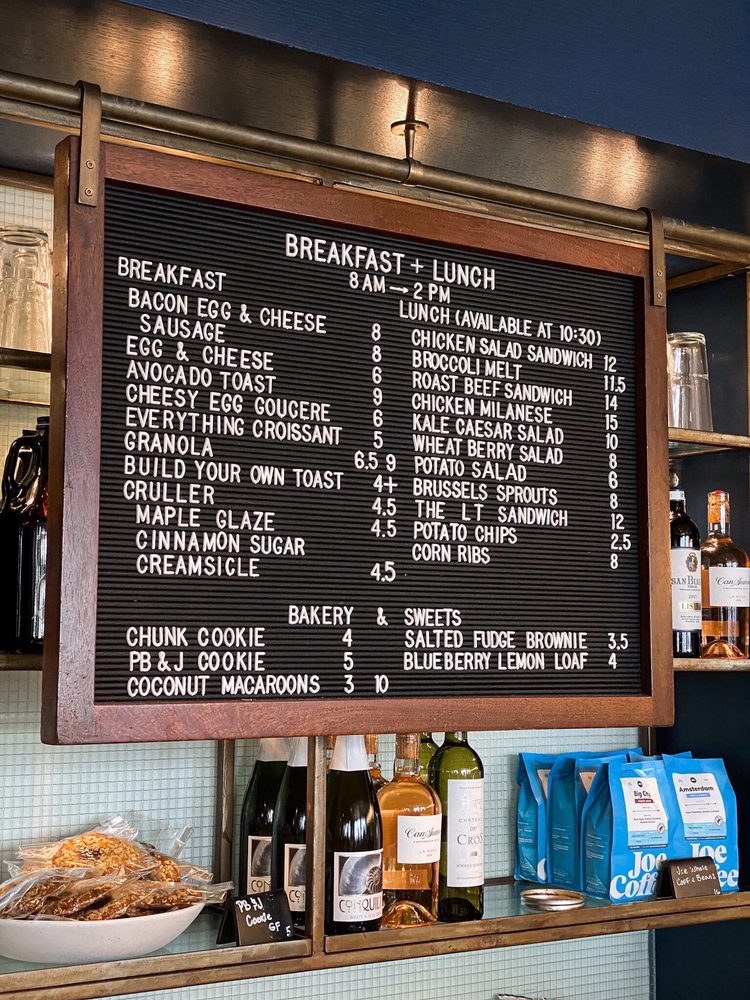 BREAKFAST + LUNCH
8 AM → 2 PM
BREAKFAST
BACON EGG & CHEESE 8
SAUSAGE 8
EGG & CHEESE 6
AVOCADO TOAST 9
CHEESY EGG GOUCERE 6
EVERYTHING CROISSANT 5
GRANOLA 6.5 9
BUILD YOUR OWN TOAST 4+
CRULLER 4.5
MAPLE GLAZE 4.5
CINNAMON SUGAR
CREAMSICLE 4.5
LUNCH (AVAILABLE AT 10:30)
CHICKEN SALAD SANDWICH 12
BROCCOLI MELT 11.5
ROAST BEEF SANDWICH 14
CHICKEN MILANESE 15
KALE CAESAR SALAD 10
WHEAT BERRY SALAD 8
POTATO SALAD 6
BRUSSELS SPROUTS 8
THE LT SANDWICH 12
POTATO CHIPS 2.5
CORN RIBS 8
BAKERY & SWEETS
CHUNK COOKIE 4
PB & J COOKIE 5
COCONUT MACAROONS 3 10
SALTED FUDGE BROWNIE 3.5
BLUEBERRY LEMON LOAF 4
PB&J
Cookie
GF 5
CHATEAU
CROS
Big City
Amsterdam
Joe
Coffee
Joe Whole
Coffee Beans